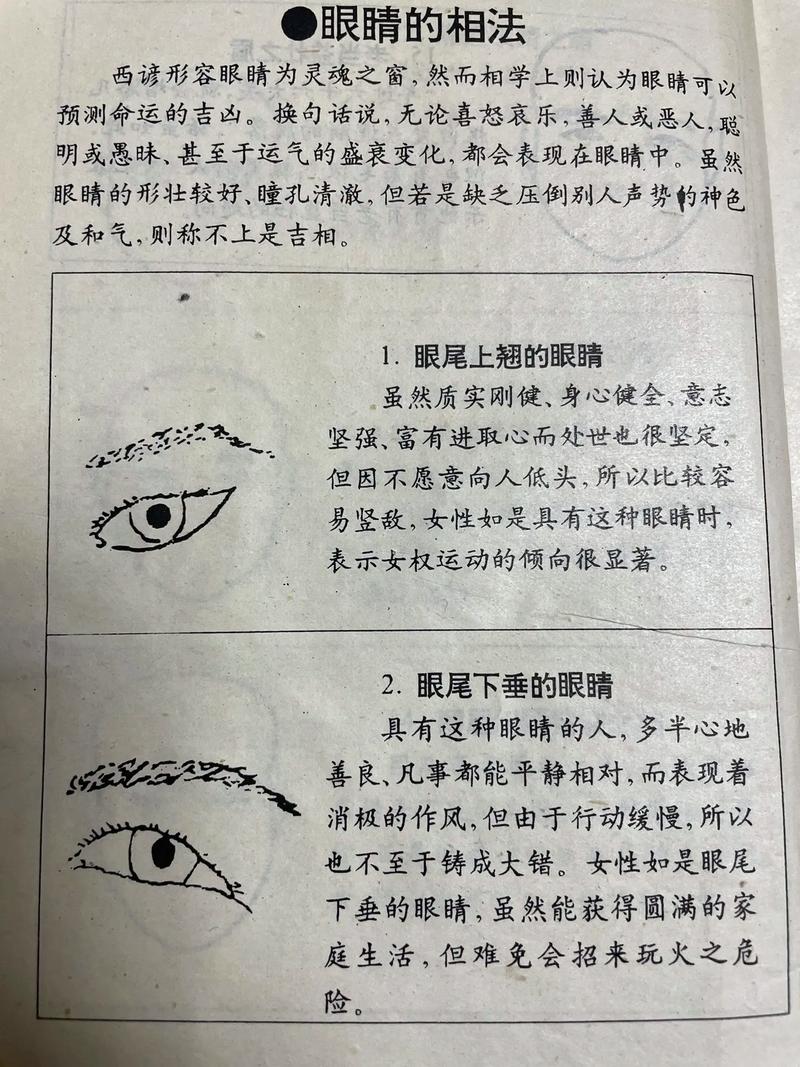 ●眼睛的相法
西谚形容眼睛为灵魂之窗，然而相学上则认为眼睛可以
预测命运的吉凶。换句话说，无论喜怒哀乐，善人或恶人，聪
明或愚昧、甚至于运气的盛衰变化，都会表现在眼睛中。虽然
眼睛的形壮较好、瞳孔清澈，但若是缺乏压倒别人声势的神色
及和气，则称不上是吉相。
1. 眼尾上翘的眼睛
虽然质实刚健、身心健全、意志
坚强、富有进取心而处世也很坚定，
但因不愿意向人低头，所以比较容
易竖敌，女性如是具有这种眼睛时，
表示女权运动的倾向很显著。
2. 眼尾下垂的眼睛
具有这种眼睛的人，多半心地
善良、凡事都能平静相对，而表现着
消极的作风，但由于行动缓慢，所以
也不至于铸成大错。女性如是眼尾
下垂的眼睛，虽然能获得圆满的家
庭生活，但难免会招来玩火之危
险。